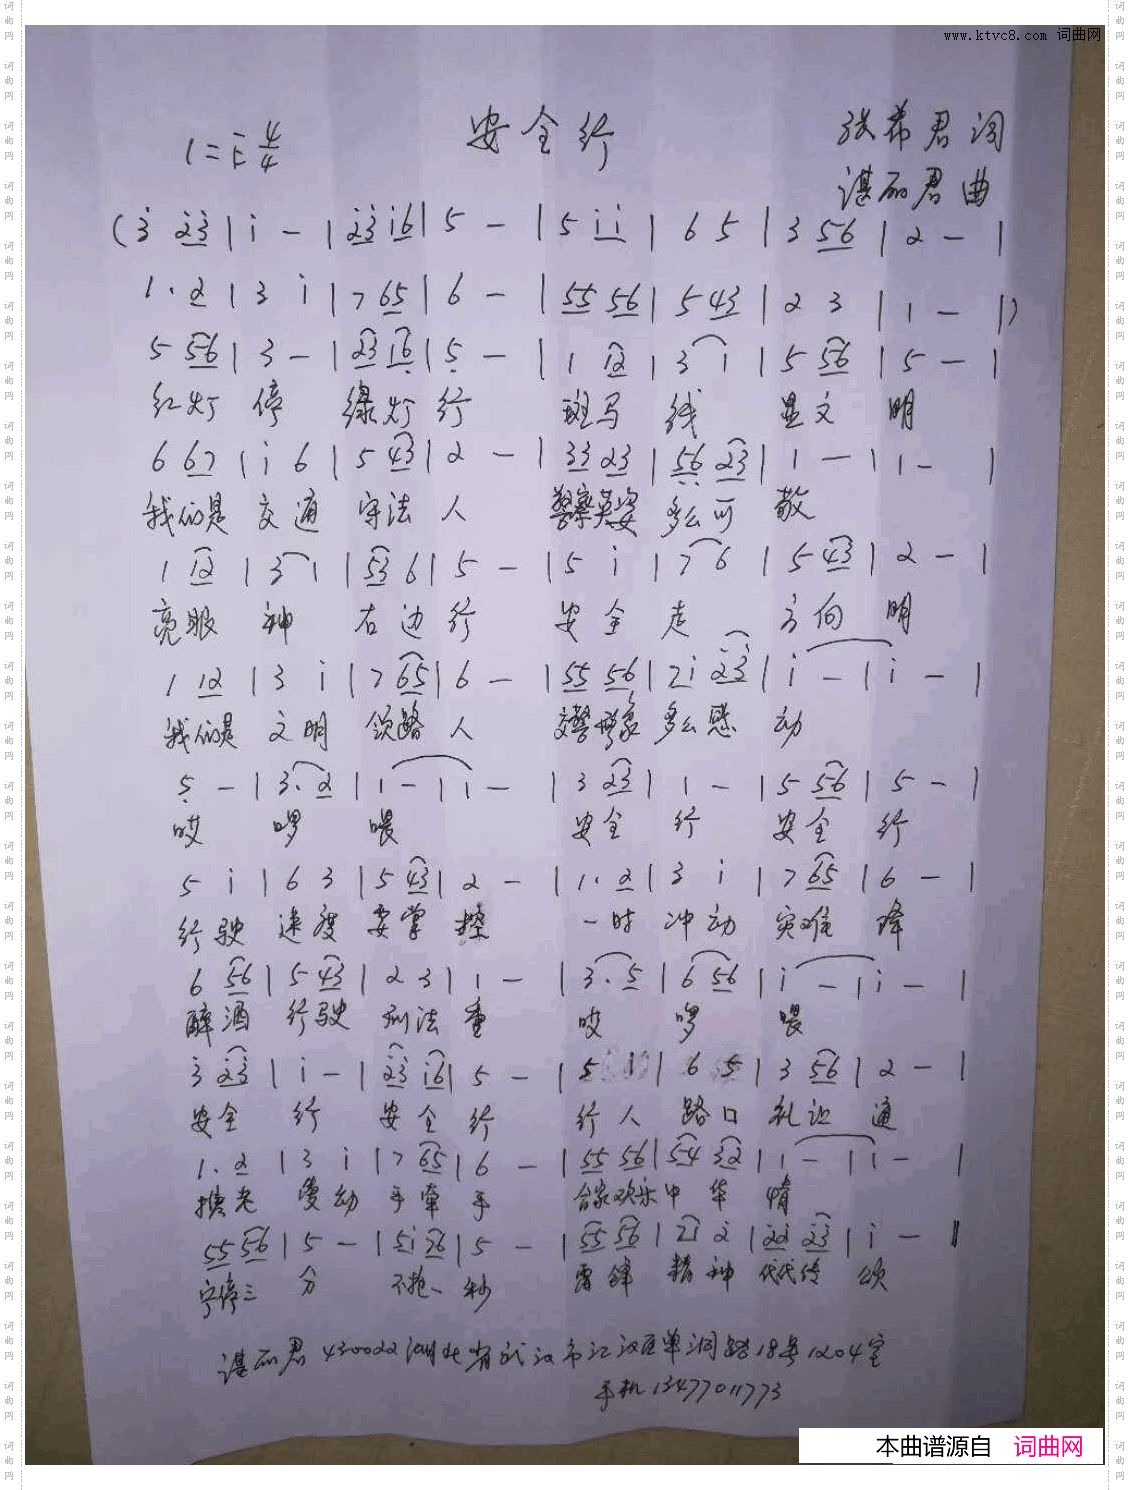 www.ktvc8.com 词曲网
安全行
1=E 4/4
张希君 词
谌丽君 曲
(3̇ 2̇3̇ | 1̇ - | 2̇3̇ 1̇6 | 5 - | 5 1̇1̇ | 6 5 | 3 56 | 2 - |
1. 2 | 3 1̇ | 7 65 | 6 - | 55 56 | 5 43 | 2 3 | 1 - |)
5 56 | 3 - | 23 16̣ | 5̣ - | 1 12 | 3 1 | 5 56 | 5 - |
红灯 停 绿灯 行 斑马 线 显文 明
6 67 | 1̇ 6 | 5 43 | 2 - | 33 23 | 5̣6̣ 23 | 1 - | 1 - |
我们是 交通 守法 人 警察英姿 多么可 敬
1 12 | 3 1 | 53 6 | 5 - | 5 1̇ | 7 6 | 5 43 | 2 - |
亮眼 神 右边 行 安全 走 方向 明
1 12 | 3 1̇ | 7 65 | 6 - | 55 56 | 2̇1̇ 2̇3̇ | 1̇ - | 1̇ - |
我们是 文明 领路 人 交警形象 多么感 动
5̣ - | 3. 2 | 1 - | 1 - | 3 23 | 1 - | 5 56 | 5 - |
哎 啰 喂 安全 行 安全 行
5 1̇ | 6 3 | 5 43 | 2 - | 1. 2 | 3 1̇ | 7 65 | 6 - |
行驶 速度 要掌 控 一时 冲动 灾难 降
6 56 | 5 43 | 2 3 | 1 - | 3. 5 | 6 56 | 1̇ - | 1̇ - |
醉酒 行驶 刑法 重 哎 啰 喂
3̇ 2̇3̇ | 1̇ - | 2̇3̇ 1̇6 | 5 - | 5 1̇ | 6 5 | 3 56 | 2 - |
安全 行 安全 行 行人 路口 礼让 通
1. 2 | 3 1̇ | 7 65 | 6 - | 55 56 | 54 32 | 1 - | 1 - |
扶老 爱幼 手牵 手 合家欢乐 中华 情
55 56 | 5 - | 51̇ 76 | 5 - | 55 56 | 2̇1̇ 2̇ | 2̇2̇ 2̇3̇ | 1̇ - ‖
宁停三 分 不抢一 秒 雷锋 精神 代代传 颂
谌丽君 430022 湖北省武汉市江汉区单洞路18号1204室
手机 13477011773
本曲谱源自 词曲网